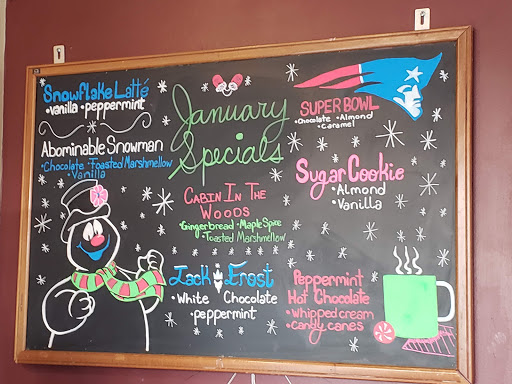 January
Specials
Snowflake Latté
•vanilla •peppermint
Abominable Snowman
•Chocolate •Toasted Marshmallow
•Vanilla
SUPER BOWL
•Chocolate •Almond
•Caramel
Sugar Cookie
•Almond
•Vanilla
CABIN IN THE
WOODS
•Gingerbread •Maple Spice
•Toasted Marshmellow
Jack Frost
•White Chocolate
•peppermint
Peppermint
Hot Chocolate
•whipped cream
•candy canes